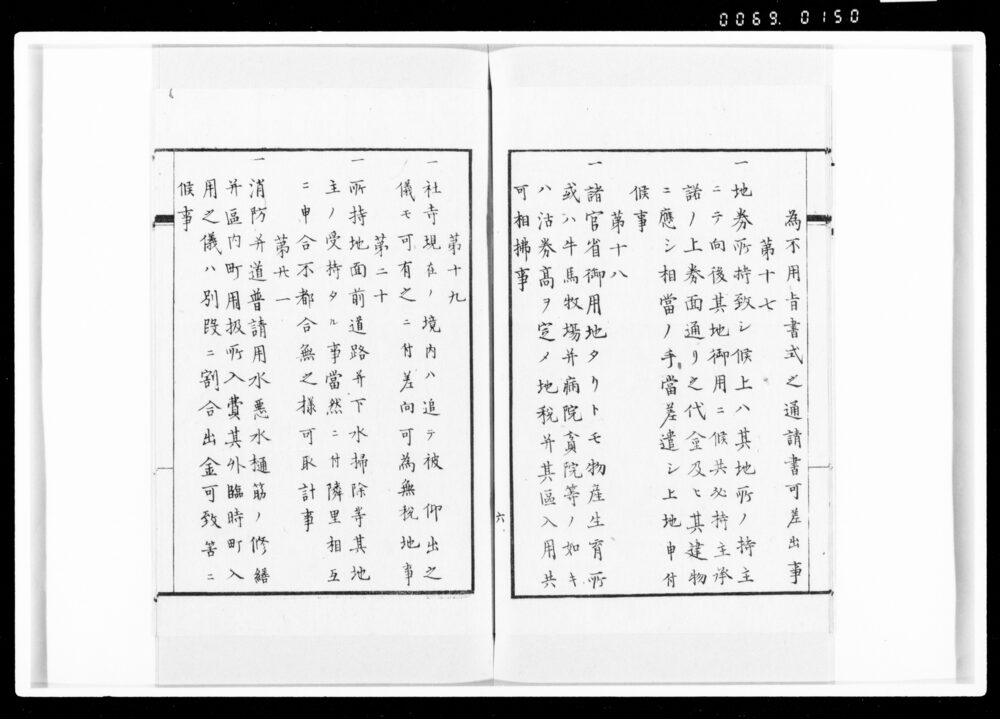 0069. 0150
為不用旨書式之通請書可差出事
第十七
一地券所持致シ候上ハ其地所ノ持主
ニテ向後其地御用ニ候共必持主承
諾ノ上券面通リ之代金及ヒ其建物
ニ應シ相當ノ手當差遣シ上地申付
候事
第十八
一諸官省御用地タリトモ物産生育所
或ハ牛馬牧場并病院貧院等ノ如キ
ハ沽券高ヲ定メ地税并其區入用共
可相拂事
六
第十九
一社寺現在ノ境内ハ追テ被 仰出之
儀モ可有之ニ付差向可為無税地事
第二十
一所持地面前道路并下水掃除等其地
主ノ受持タル事當然ニ付隣里相互
ニ申合不都合無之様可取計事
第廿一
一消防并道普請用水悪水樋筋ノ修繕
并區内町用扱所入費其外臨時町入
用之儀ハ別段ニ割合出金可致筈ニ
候事